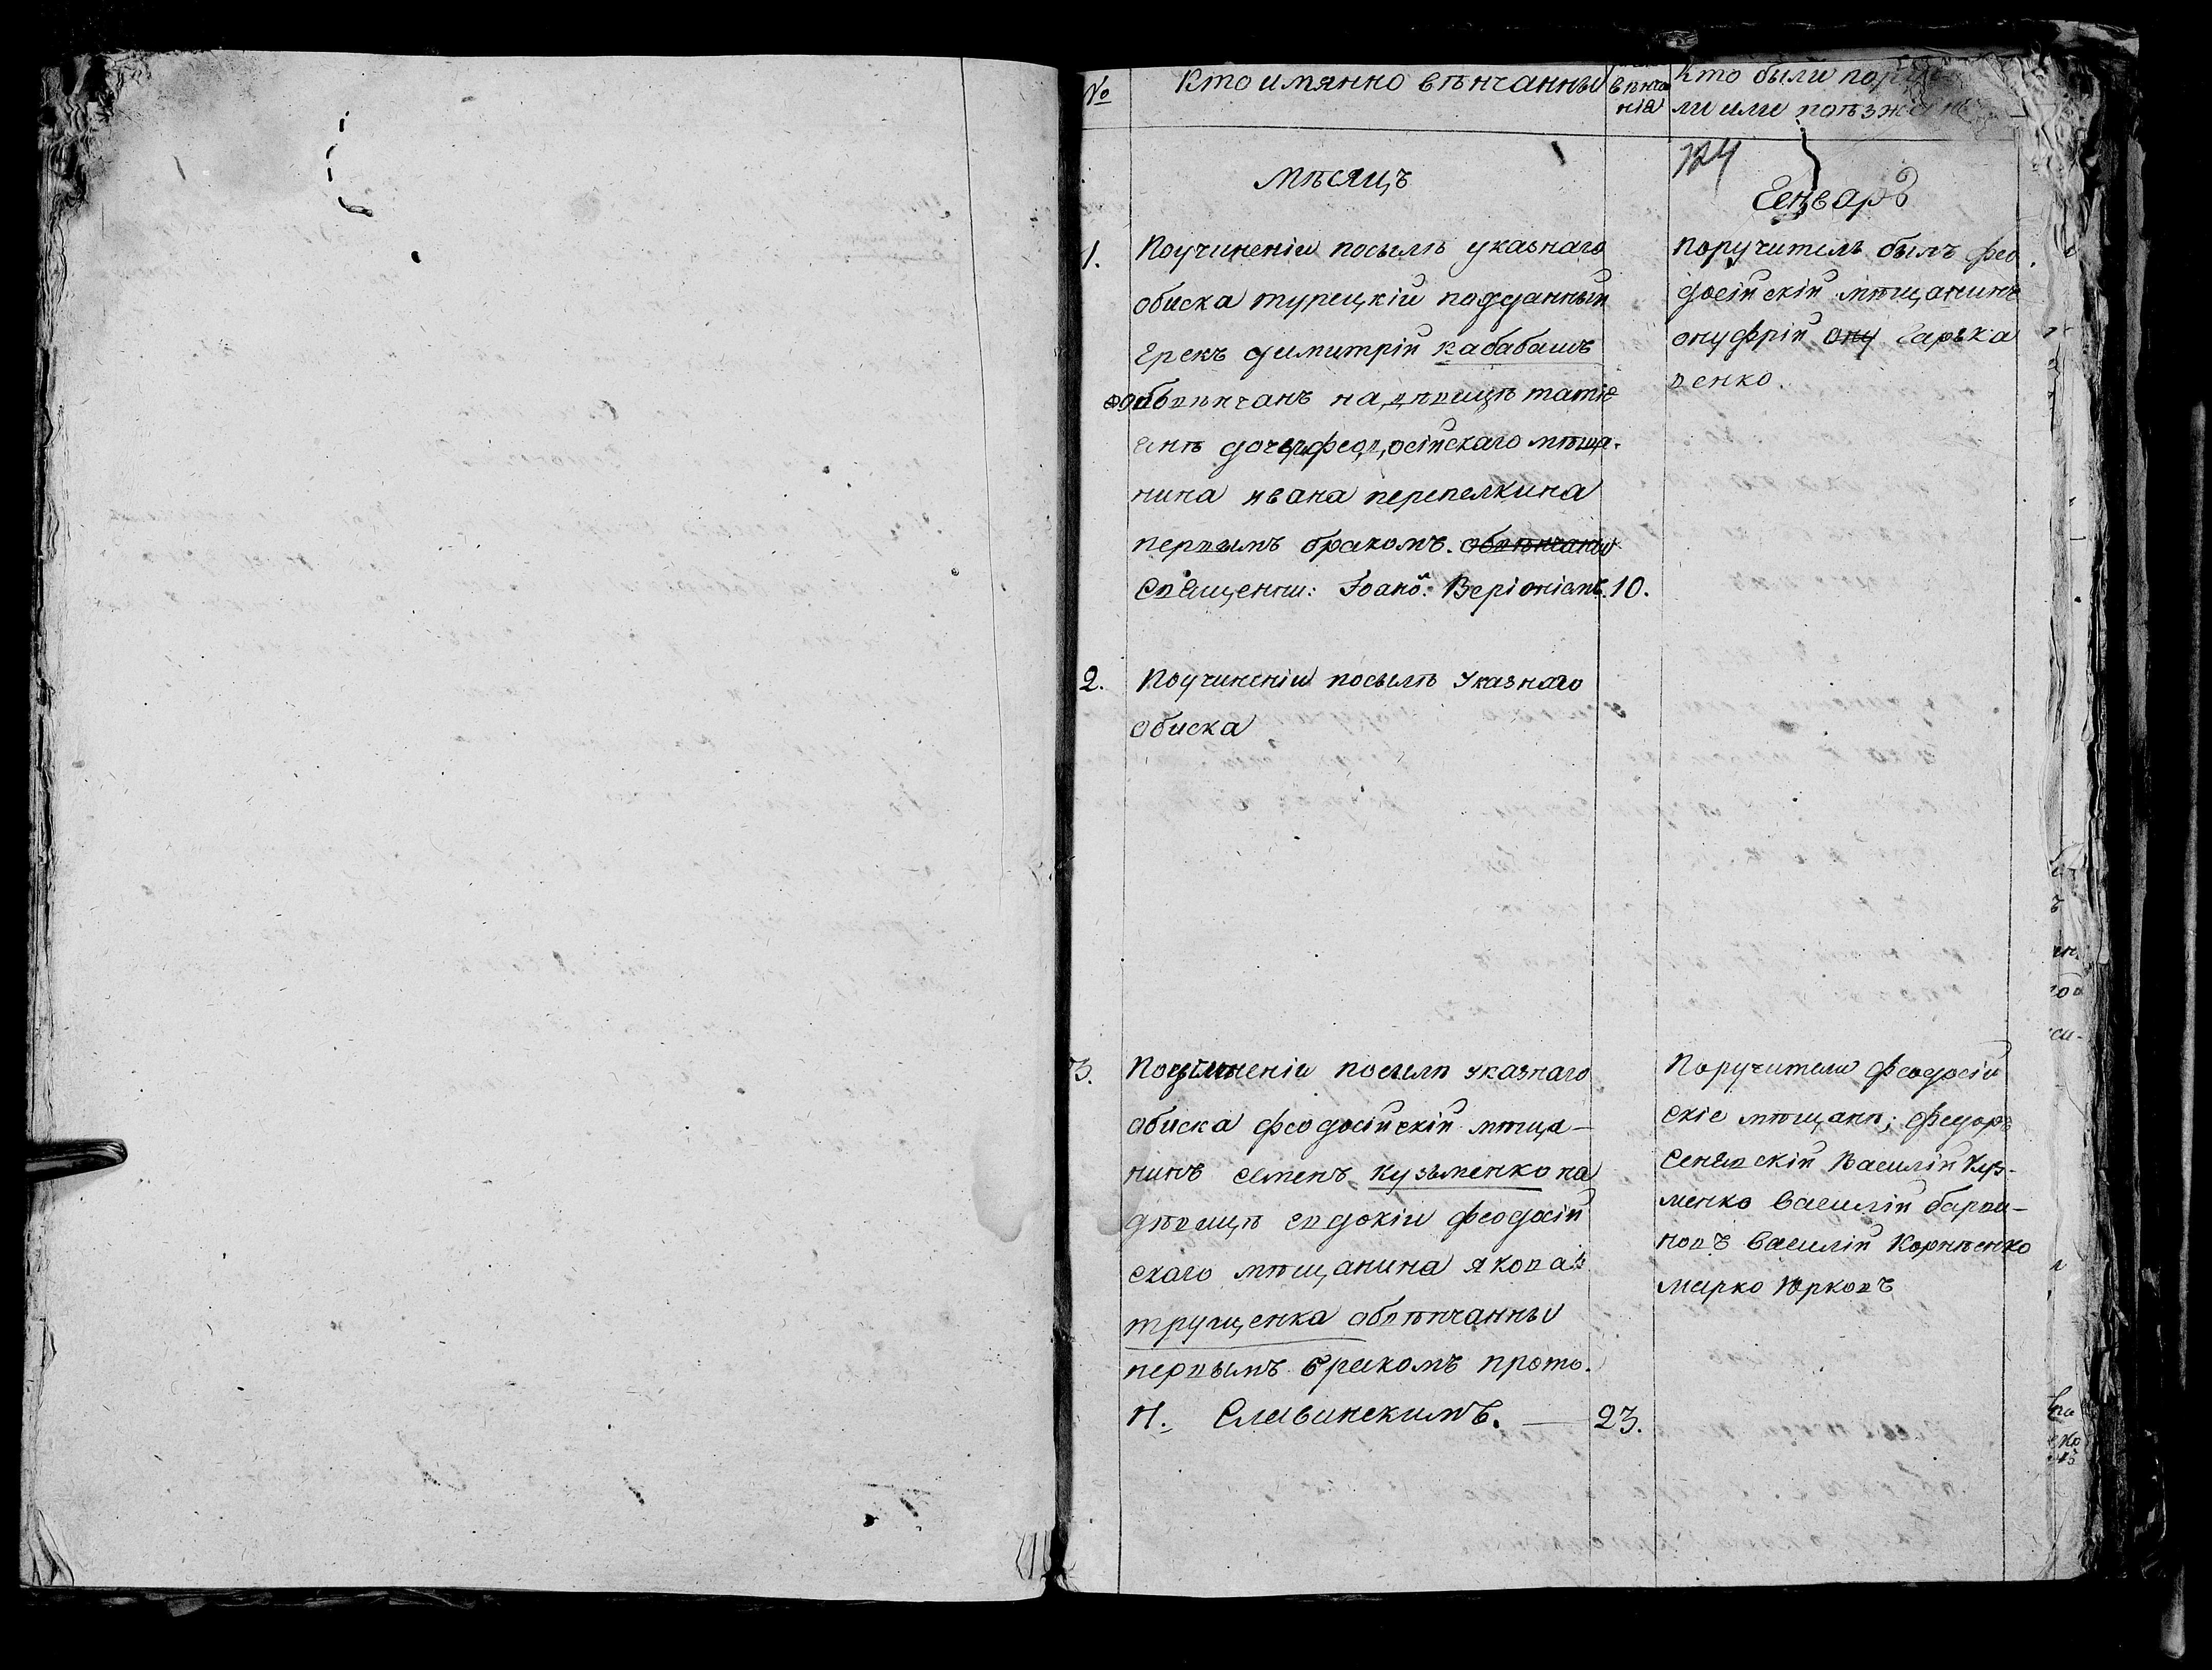 №
Кто имянно вѣнчанны
вѣнча
нія
Кто были пору
ли или поѣзжан
124
мѣсяцъ
Генварь
1.
Поучиненіи посылѣ указнаго
обиска турецкій подданный
Грекъ димитрій кабабашъ
обвѣнчанъ на дѣвицѣ татіе
анѣ дочери феодосійскаго мѣща-
нина ивана перепелкина
первымъ бракомъ. обвѣнчаны
Священни:
10.
поручитель былъ фео
досійскій мѣщанинъ
онуфрій ону гарька
венко.
2.
Поучиненіи посылѣ указнаго
обиска
3.
Поучиненіи посылѣ указнаго
обиска феодосійскій мѣща-
нинъ семенъ кузьменко на
дѣвицѣ евдокіи феодосій
скаго мѣщанина якова
трущенка обвѣнчанны
первымъ бракомъ прото.
И. Славинскимъ.
23.
Поручители феодосій
скіе мѣщанѣ; федоръ
Василій Куз-
менко василій
василій Корнѣенко
марко Юрковъ